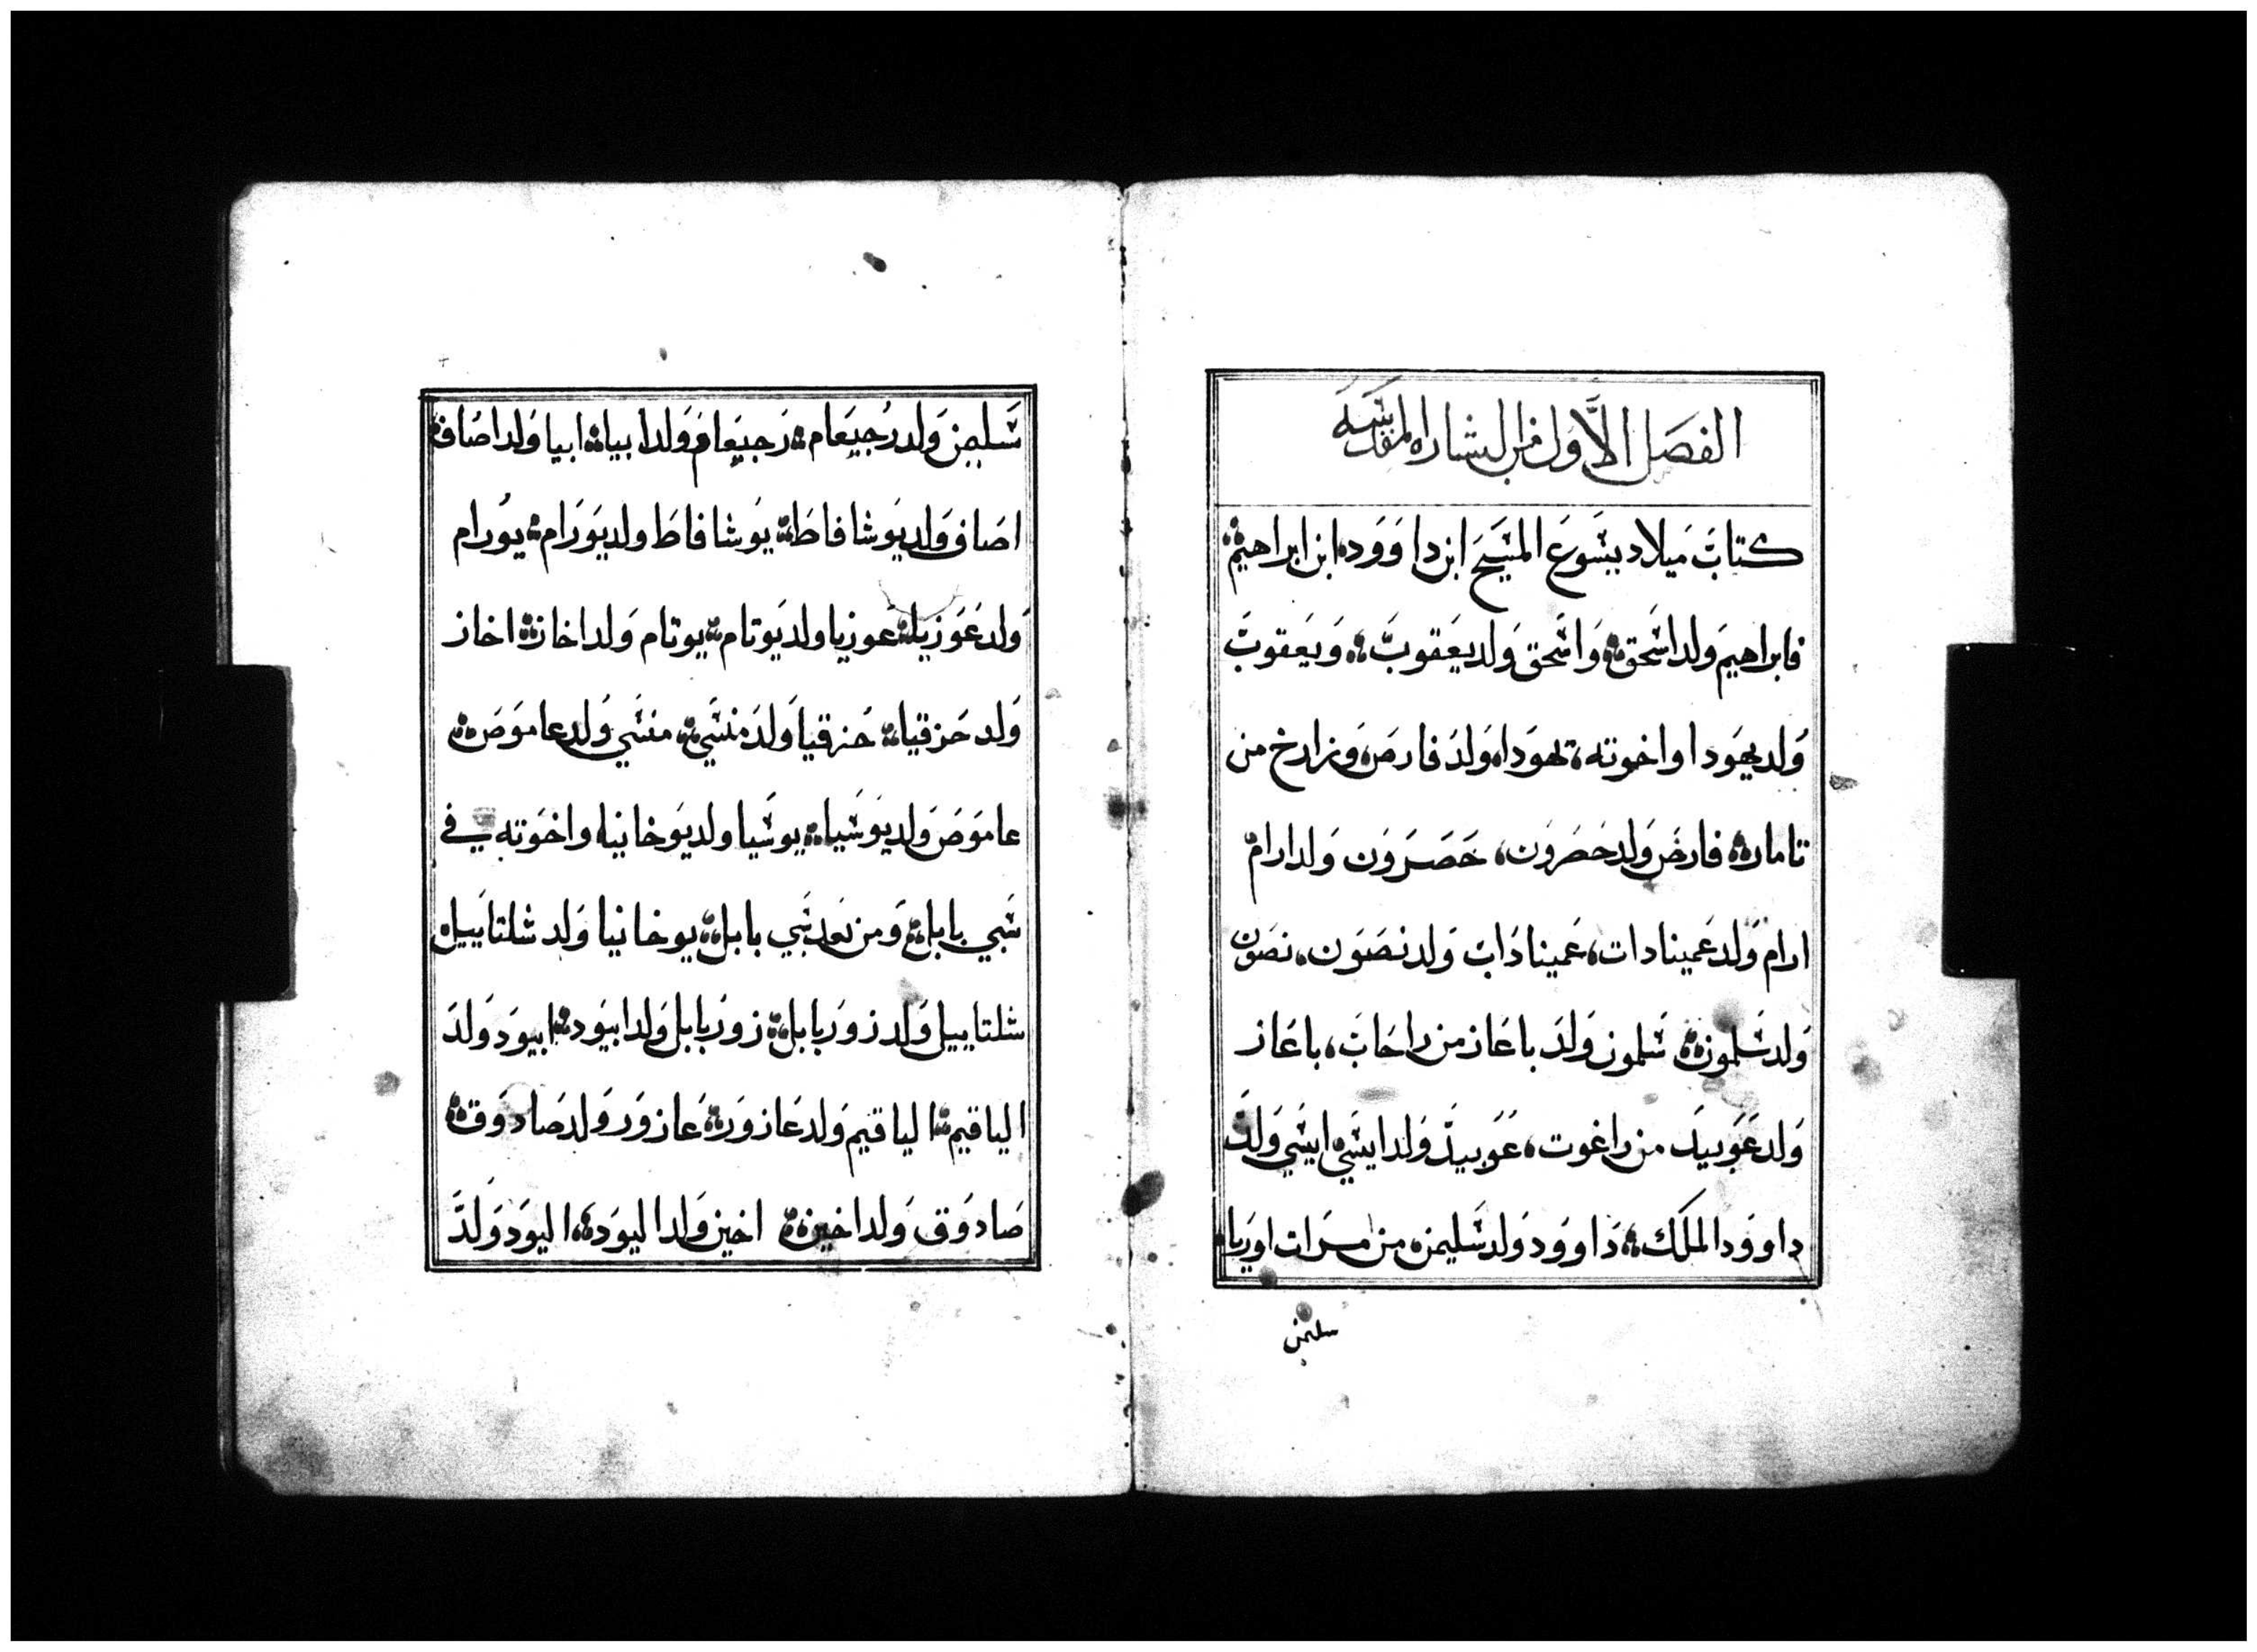 الفصل الاول من البشاره المقدسه
كتاب ميلاد يسوع المسيح ابن داوود ابن ابراهيم
فابراهيم ولد اسحق واسحق ولد يعقوب ويعقوب
ولد يهودا واخوته يهودا ولد فارص وزارخ من
تامار فارص ولد حصرون حصرون ولد ارام
ارام ولد عميناداب عميناداب ولد نصون نصون
ولد سلمون سلمون ولد باعاز من راحاب باعاز
ولد عوبيد من راغوت عوبيد ولد ايسي ايسي ولد
داوود الملك داوود ولد سليمن من مرات اوريا
سليمن
سليمن ولد رجيعام رجيعام ولد ابيا ابيا ولد اصاف
اصاف ولد يوشافاط يوشافاط ولد يورام يورام
ولد عوزيا عوزيا ولد يوتام يوتام ولد اخاز اخاز
ولد حزقيا حزقيا ولد منسي منسي ولد عاموص
عاموص ولد يوسيا يوسيا ولد يوخانيا واخوته في
سبي بابل ومن بعد سبي بابل يوخانيا ولد شلتاييل
شلتاييل ولد زوربابل زوربابل ولد ابيود ابيود ولد
الياقيم الياقيم ولد عازور عازور ولد صادوق
صادوق ولد اخين اخين ولد اليود اليود ولد